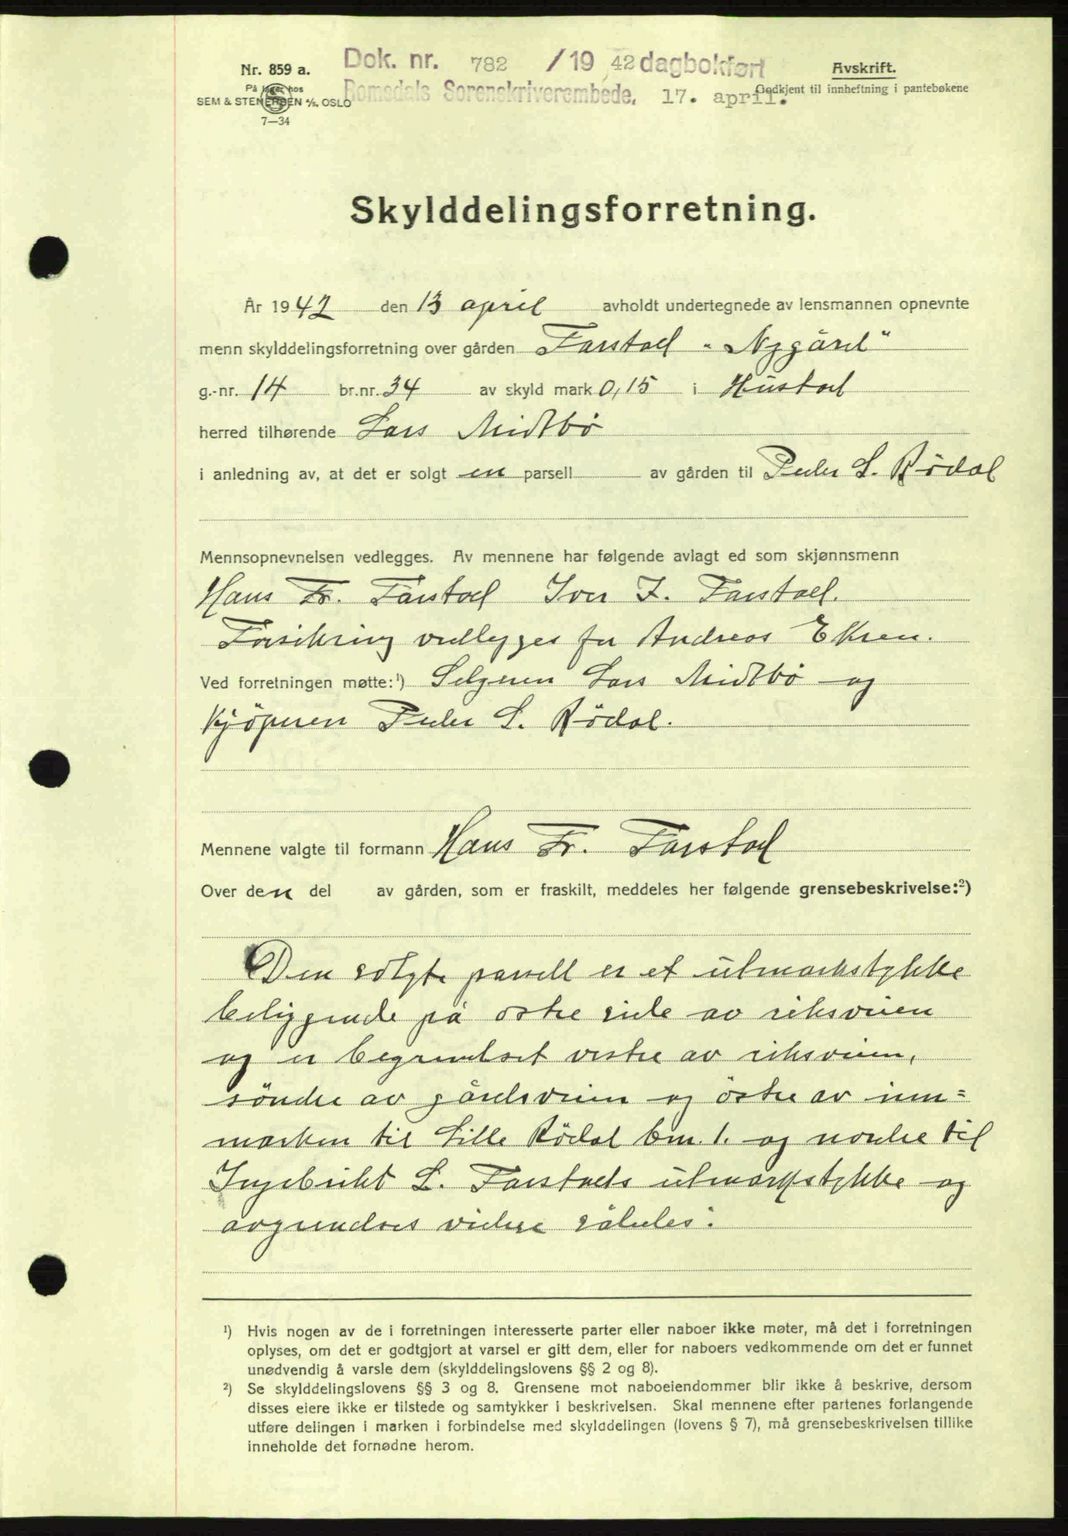 Nr. 859 a.
På lager hos
SEM & STENERSEN A/S, OSLO
7—34
Dok. nr. 782 /19 42 dagbokført
Romsdals Sorenskriverembede, 17. april.
Avskrift.
Godkjent til innheftning i pantebøkene
Skylddelingsforretning.
År 1942 den 13 april avholdt undertegnede av lensmannen opnevnte
menn skylddelingsforretning over gården Farstad "Nygård"
g.-nr. 14 br.nr. 34 av skyld mark 0,15 i Hustad
herred tilhørende Lars Midtbö
i anledning av, at det er solgt en parsell av gården til Peder S. Rödal
Mennsopnevnelsen vedlegges. Av mennene har følgende avlagt ed som skjønnsmenn
Hans Fr. Farstad Iver I. Farstad.
Forsikring vedlegges for Andreas Ekren.
Ved forretningen møtte:¹) Selgeren Lars Midtbö og
kjöperen Peder S. Rödal.
Mennene valgte til formann Hans Fr. Farstad
Over den del av gården, som er fraskilt, meddeles her følgende grensebeskrivelse:²)
Den solgte parsell er et utmarkstykke
beliggende på östre side av riksveien
og er begrendset vestre av riksveien,
söndre av gårdsveien og östre av inn=
marken til Lille Rödal bnr. 1. og nordre til
Ingebrikt L. Farstads utmarkstykke og
avgrendses videre således:
¹) Hvis nogen av de i forretningen interesserte parter eller naboer ikke møter, må det i forretningen
oplyses, om det er godtgjort at varsel er gitt dem, eller for naboers vedkommende om det er funnet
unødvendig å varsle dem (skylddelingslovens §§ 2 og 8).
²) Se skylddelingslovens §§ 3 og 8. Grensene mot naboeiendommer blir ikke å beskrive, dersom
disses eiere ikke er tilstede og samtykker i beskrivelsen. Skal mennene efter partenes forlangende
utføre delingen i marken i forbindelse med skylddelingen (lovens § 7), må grensebeskrivelsen tillike
inneholde det fornødne herom.